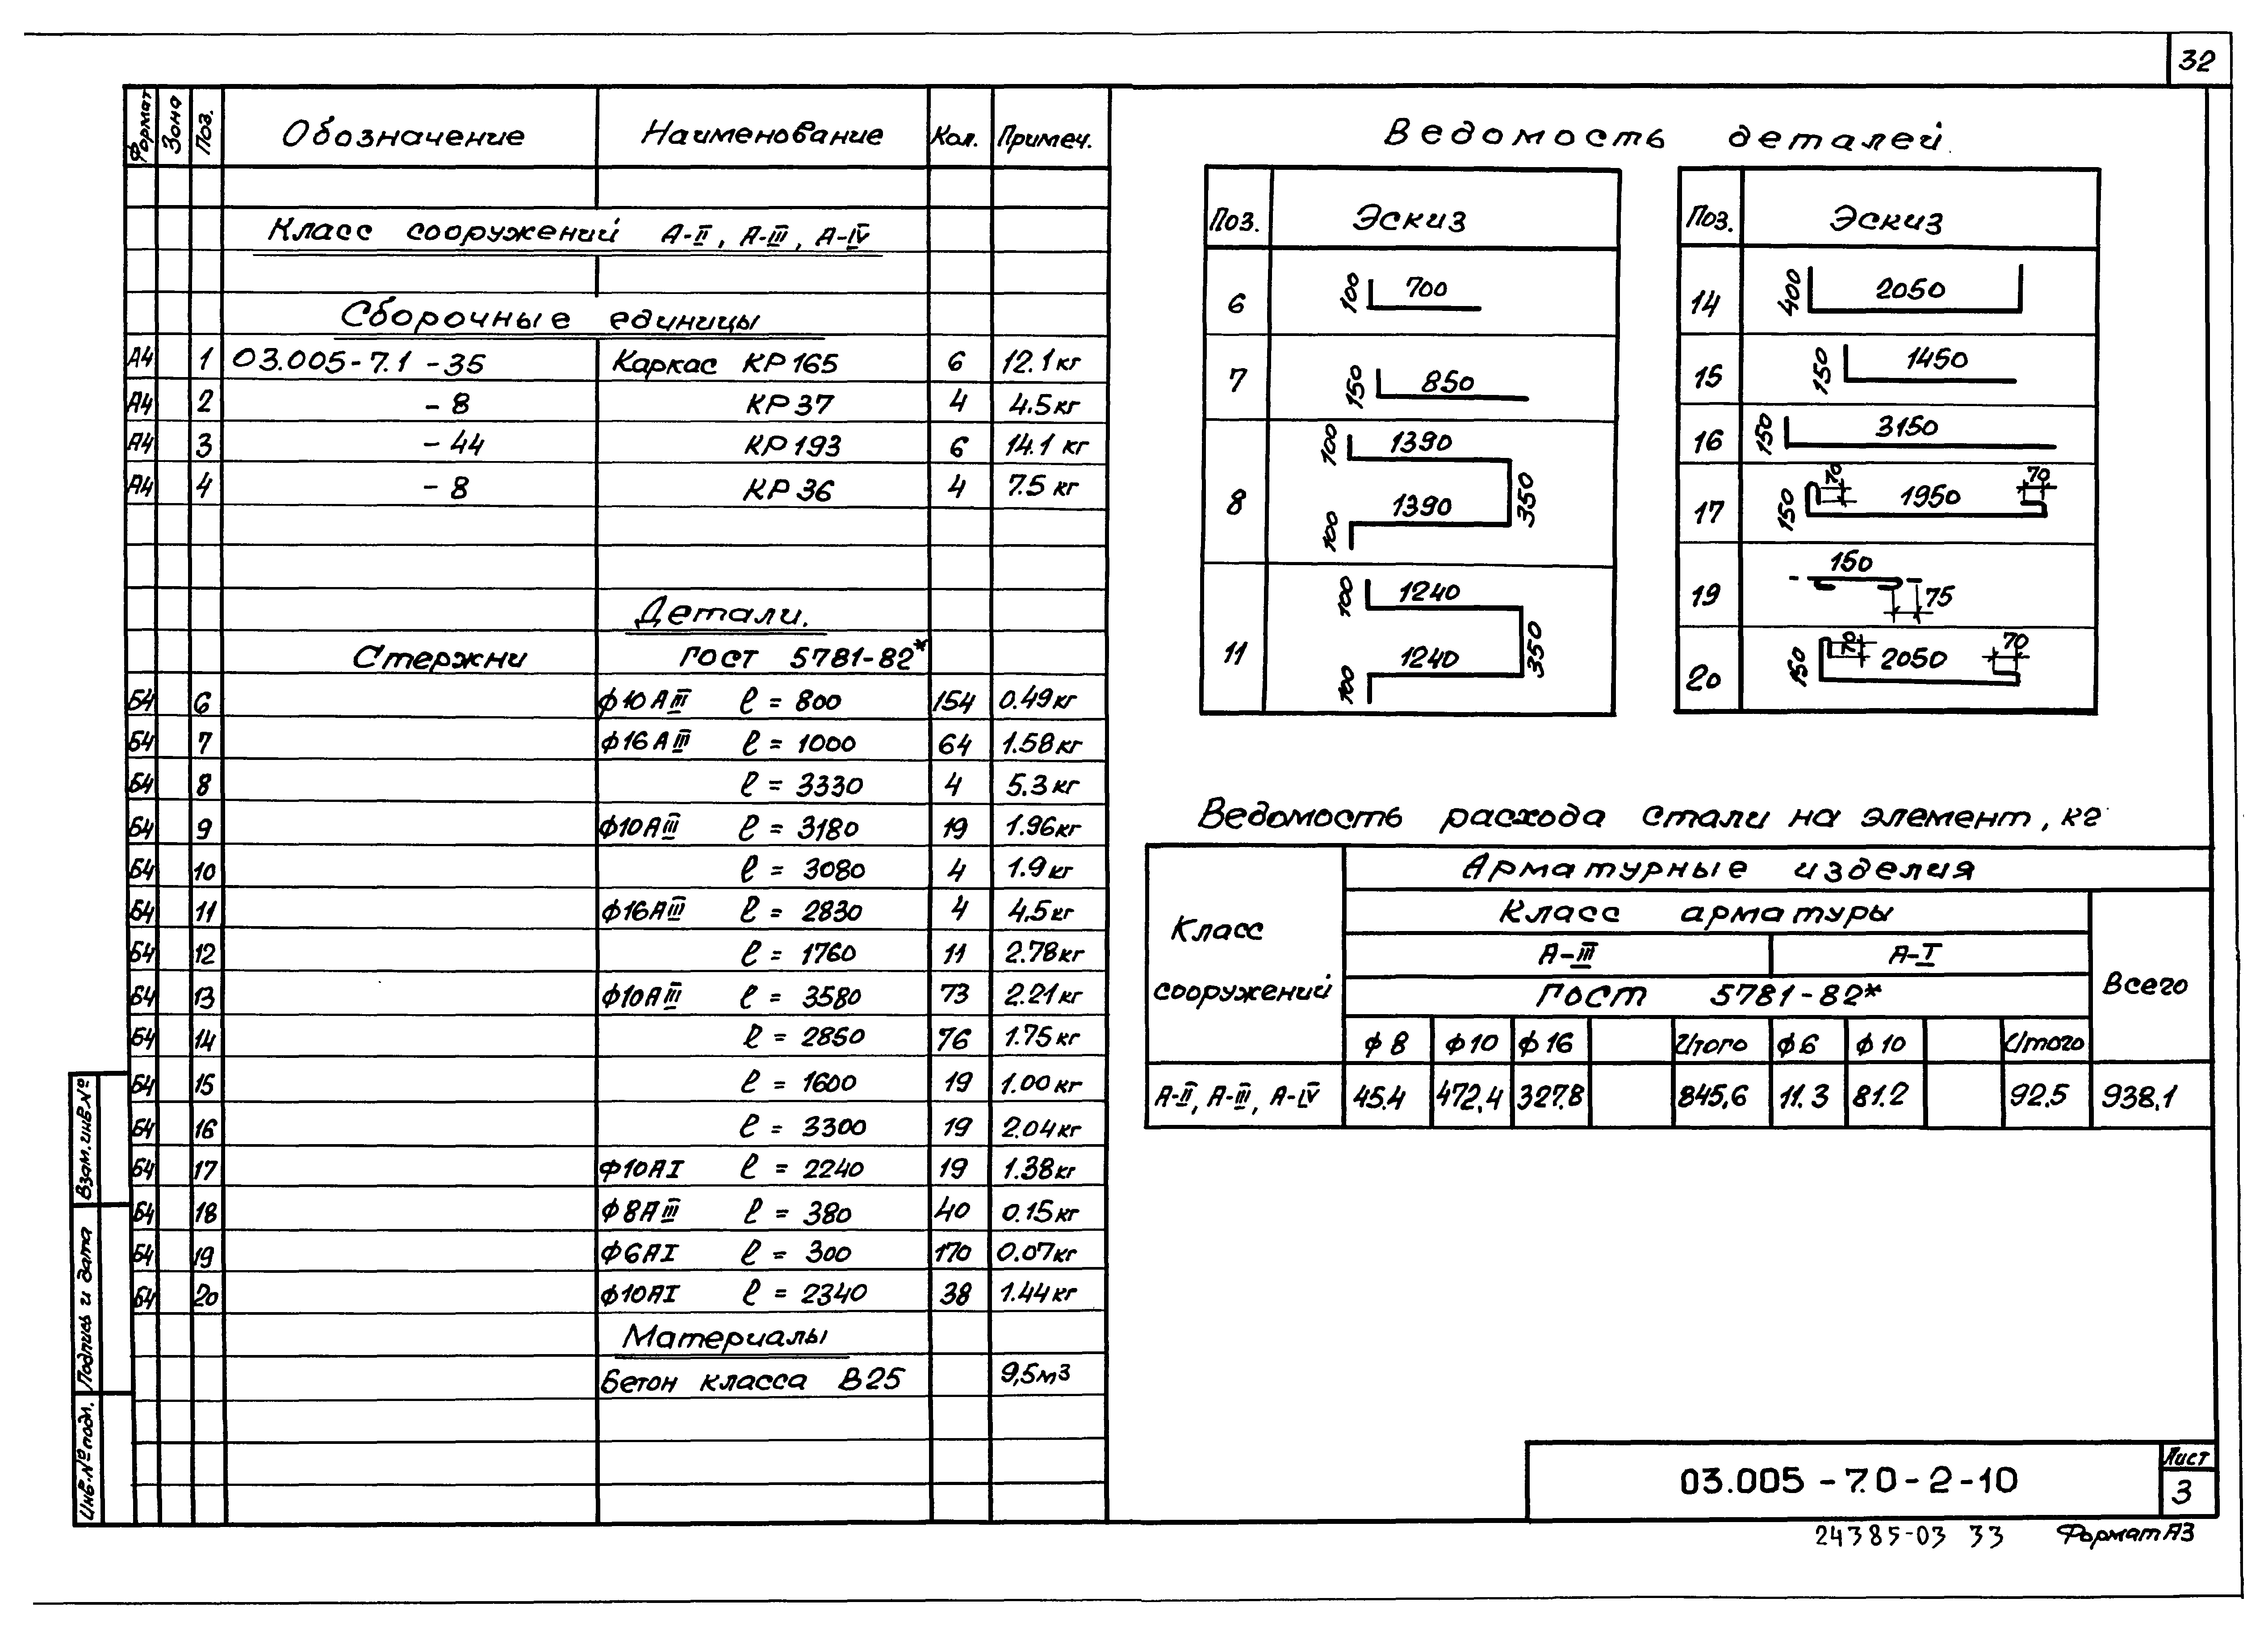 32
Формат Зона Поз. Обозначение Наименование Кол. Примеч.
Класс сооружений А-II, А-III, А-IV
Сборочные единицы
А4 1 03.005-7.1 -35 Каркас КР165 6 12.1 кг
А4 2 -8 КР37 4 4.5 кг
А4 3 -44 КР193 6 14.1 кг
А4 4 -8 КР36 4 7.5 кг
Детали.
Стержни ГОСТ 5781-82*
Б4 6 ф10АIII ℓ = 800 154 0.49 кг
Б4 7 ф16АIII ℓ = 1000 64 1.58 кг
Б4 8 ℓ = 3330 4 5.3 кг
Б4 9 ф10АIII ℓ = 3180 19 1.96 кг
Б4 10 ℓ = 3080 4 1.9 кг
Б4 11 ф16АIII ℓ = 2830 4 4.5 кг
Б4 12 ℓ = 1760 11 2.78 кг
Б4 13 ф10АIII ℓ = 3580 73 2.21 кг
Б4 14 ℓ = 2850 76 1.75 кг
Б4 15 ℓ = 1600 19 1.00 кг
Б4 16 ℓ = 3300 19 2.04 кг
Б4 17 ф10АI ℓ = 2240 19 1.38 кг
Б4 18 ф8АIII ℓ = 380 40 0.15 кг
Б4 19 ф6АI ℓ = 300 170 0.07 кг
Б4 20 ф10АI ℓ = 2340 38 1.44 кг
Материалы
Бетон класса В25 9,5 м3
Ведомость деталей
Поз. Эскиз
6 100 700
7 150 850
8 100 1390 350 1390 100
11 100 1240 350 1240 100
Поз. Эскиз
14 400 2050
15 150 1450
16 150 3150
17 150 70 1950 70
19 150 75
20 150 70 2050 70
Ведомость расхода стали на элемент, кг
Класс сооружений Арматурные изделия
Класс арматуры Всего
А-III А-I
ГОСТ 5781-82*
ф 8 ф10 ф 16 Итого ф 6 ф 10 Итого
А-II, А-III, А-IV 45.4 472,4 327.8 845,6 11.3 81.2 92.5 938,1
Взам. инв. №
Подпись и дата
Инв. № подл.
03.005-7.0-2-10
Лист
3
24385-03 33 Формат А3